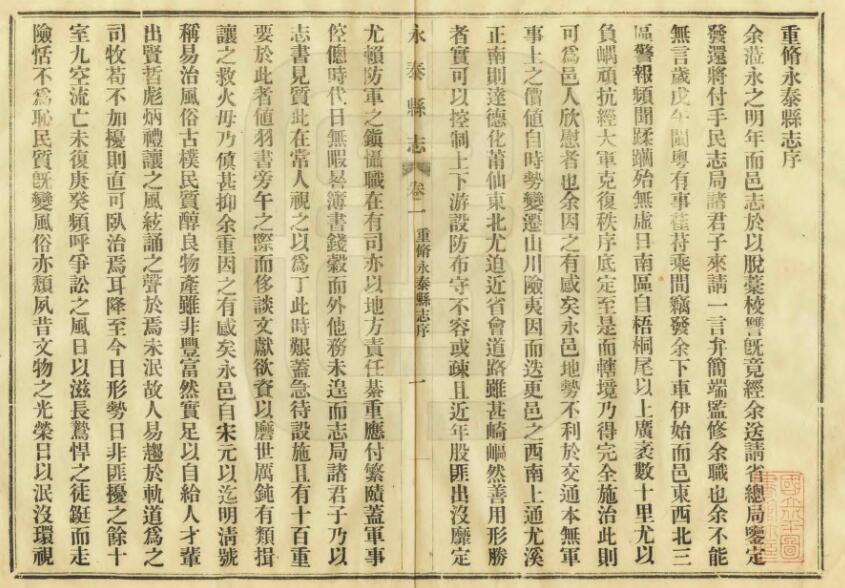 重脩永泰縣志序
余蒞永之明年而邑志於以脫藁校讐旣竟經余送請省總局鑒定
發還將付手民志局諸君子來請一言弁簡端監修余職也余不能
無言歲戊午閩粵有事萑苻乘間竊發余下車伊始而邑東西北三
區警報頻聞蹂躪殆無虛日南區自梧桐尾以上廣袤數十里尤以
負嵎頑抗經大軍克復秩序底定至是而轄境乃得完全施治此則
可爲邑人欣慰者也余因之有感矣永邑地勢不利於交通本無軍
事上之價値自時勢變遷山川險夷因而迭更邑之西南上通尤溪
正南則達德化莆仙東北尤迫近省會道路雖甚崎嶇然善用形勝
者實可以控制上下游設防布守不容或疎且近年股匪出沒靡定
永泰縣志
卷二
重脩永泰縣志序
一
尤賴防軍之鎭懾職在有司亦以地方責任綦重應付繁賾蓋軍事
倥傯時代日無暇晷簿書錢穀而外他務未遑而志局諸君子乃以
志書見質此在常人視之以爲丁此時艱蓋急待設施且有十百重
要於此者値羽書旁午之際而侈談文獻欲資以磨世厲鈍有類揖
讓之救火毋乃傎甚抑余重因之有感矣永邑自宋元以迄明淸號
稱易治風俗古樸民質醇良物產雖非豐富然實足以自給人才輩
出賢哲彪炳禮讓之風絃誦之聲於焉未泯故人易趨於軌道爲之
司牧苟不加擾則直可臥治焉耳降至今日形勢日非匪擾之餘十
室九空流亡未復庚癸頻呼爭訟之風日以滋長驁悍之徒鋌而走
險恬不爲恥民質旣變風俗亦頹夙昔文物之光榮日以泯沒環視